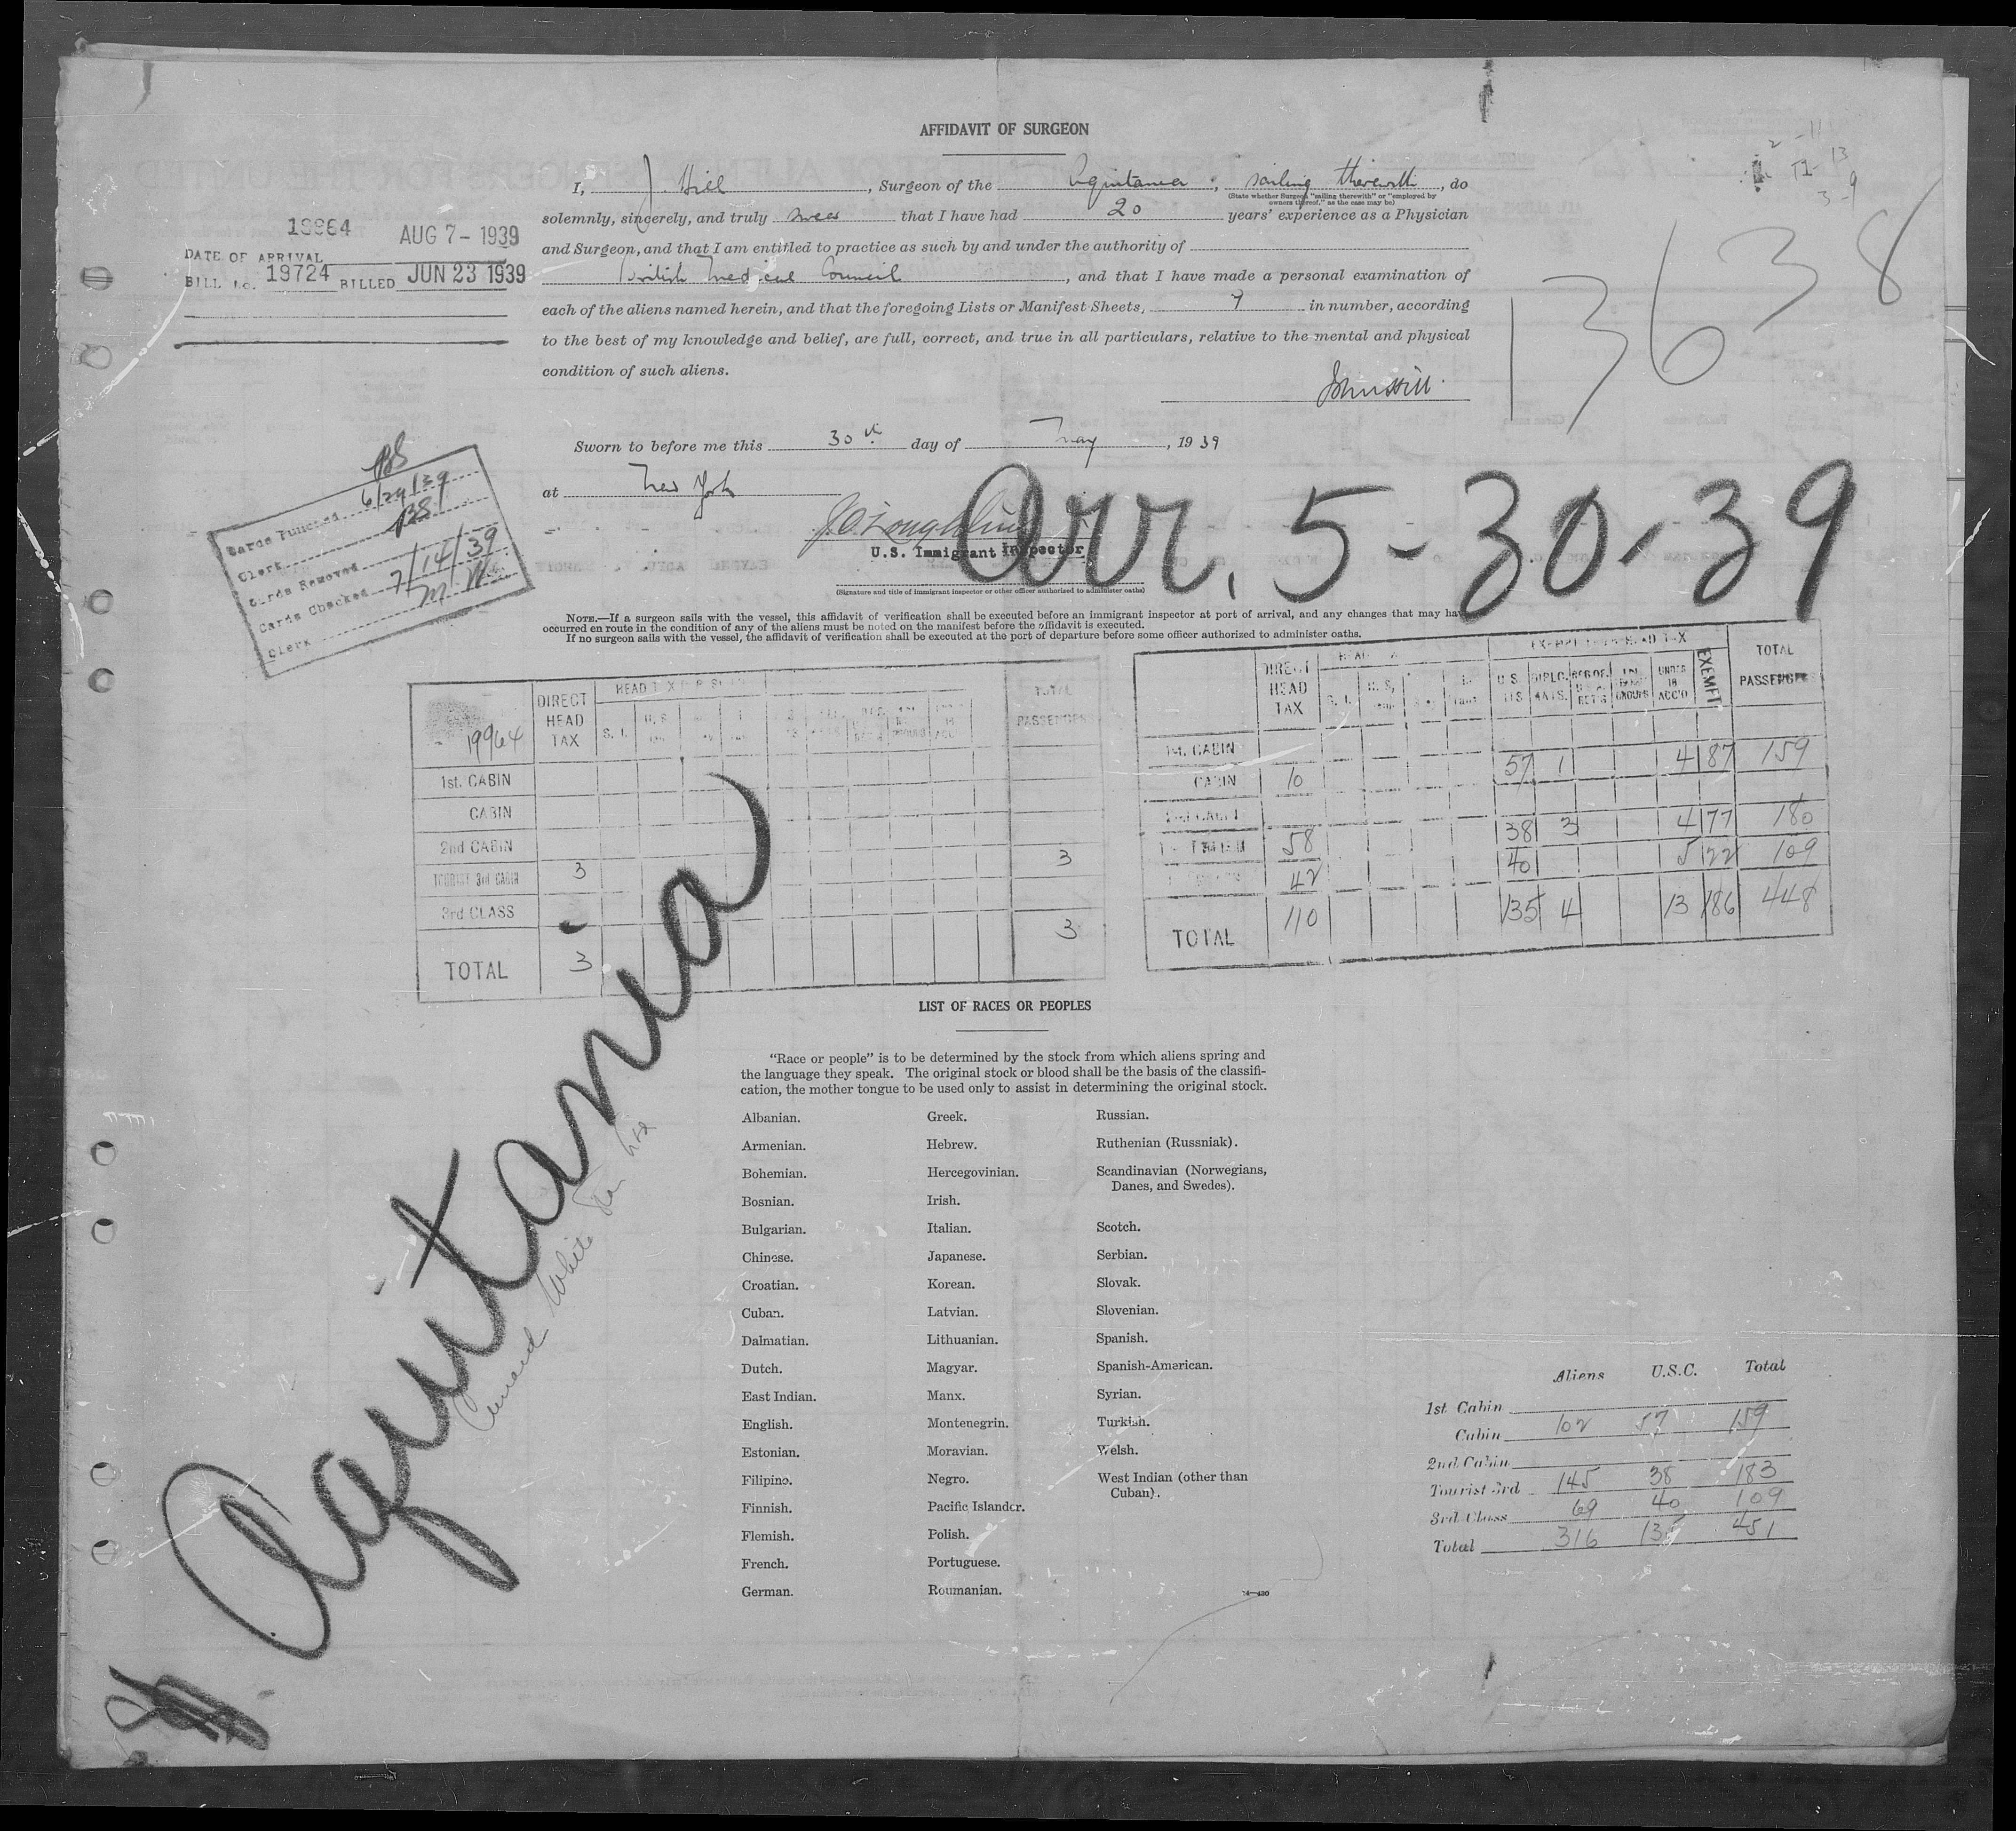 AFFIDAVIT OF SURGEON
I, J Hill, Surgeon of the Aquitania, sailing therewith, do
(State whether Surgeon "sailing therewith" or "employed by
owners thereof," as the case may be)
solemnly, sincerely, and truly swear that I have had 20 years' experience as a Physician
and Surgeon, and that I am entitled to practice as such by and under the authority of
British Medical Council, and that I have made a personal examination of
each of the aliens named herein, and that the foregoing Lists or Manifest Sheets, 9 in number, according
to the best of my knowledge and belief, are full, correct, and true in all particulars, relative to the mental and physical
condition of such aliens.
John Hill.
Sworn to before me this 30th day of May, 1939
at New York
J.O. Loughlin
U.S. Immigrant Inspector
(Signature and title of immigrant inspector or other officer authorized to administer oaths)
AUG 7-1939
DATE OF ARRIVAL
BILL No. 19724 BILLED JUN 23 1939
2 -11
13
3-9
13638
Arr. 5-30-39
Cards Punched 6/29/39
Clerk BS
Cards Removed
Cards Checked 7/14/39
Clerk M.W.
NOTE.—If a surgeon sails with the vessel, this affidavit of verification shall be executed before an immigrant inspector at port of arrival, and any changes that may have
occurred en route in the condition of any of the aliens must be noted on the manifest before the affidavit is executed.
If no surgeon sails with the vessel, the affidavit of verification shall be executed at the port of departure before some officer authorized to administer oaths.
19964 DIRECT HEAD TAX S. I. U. S. TOTAL PASSENGERS
1st. CABIN
CABIN
2nd CABIN
TOURIST 3rd CABIN 3 3
3rd CLASS
TOTAL 3 3
DIRECT HEAD TAX S. I. U. S. EXEMPT FROM HEAD TAX U.S. DIPLO-MATS. UNDER 16 ACC'D EXEMPT TOTAL PASSENGERS
1st. CABIN
CABIN 10 57 1 4 87 159
2nd CABIN
58 38 3 4 77 180
42 40 5 22 109
TOTAL 110 135 4 13 186 448
Aquitania
Cunard White Star Line
LIST OF RACES OR PEOPLES
"Race or people" is to be determined by the stock from which aliens spring and
the language they speak. The original stock or blood shall be the basis of the classifi-
cation, the mother tongue to be used only to assist in determining the original stock.
Albanian.
Armenian.
Bohemian.
Bosnian.
Bulgarian.
Chinese.
Croatian.
Cuban.
Dalmatian.
Dutch.
East Indian.
English.
Estonian.
Filipino.
Finnish.
Flemish.
French.
German.
Greek.
Hebrew.
Hercegovinian.
Irish.
Italian.
Japanese.
Korean.
Latvian.
Lithuanian.
Magyar.
Manx.
Montenegrin.
Moravian.
Negro.
Pacific Islander.
Polish.
Portuguese.
Roumanian.
Russian.
Ruthenian (Russniak).
Scandinavian (Norwegians,
Danes, and Swedes).
Scotch.
Serbian.
Slovak.
Slovenian.
Spanish.
Spanish-American.
Syrian.
Turkish.
Welsh.
West Indian (other than
Cuban).
Aliens U.S.C. Total
1st Cabin
Cabin 102 57 159
2nd Cabin
Tourist 3rd 145 38 183
3rd Class 69 40 109
Total 316 135 451